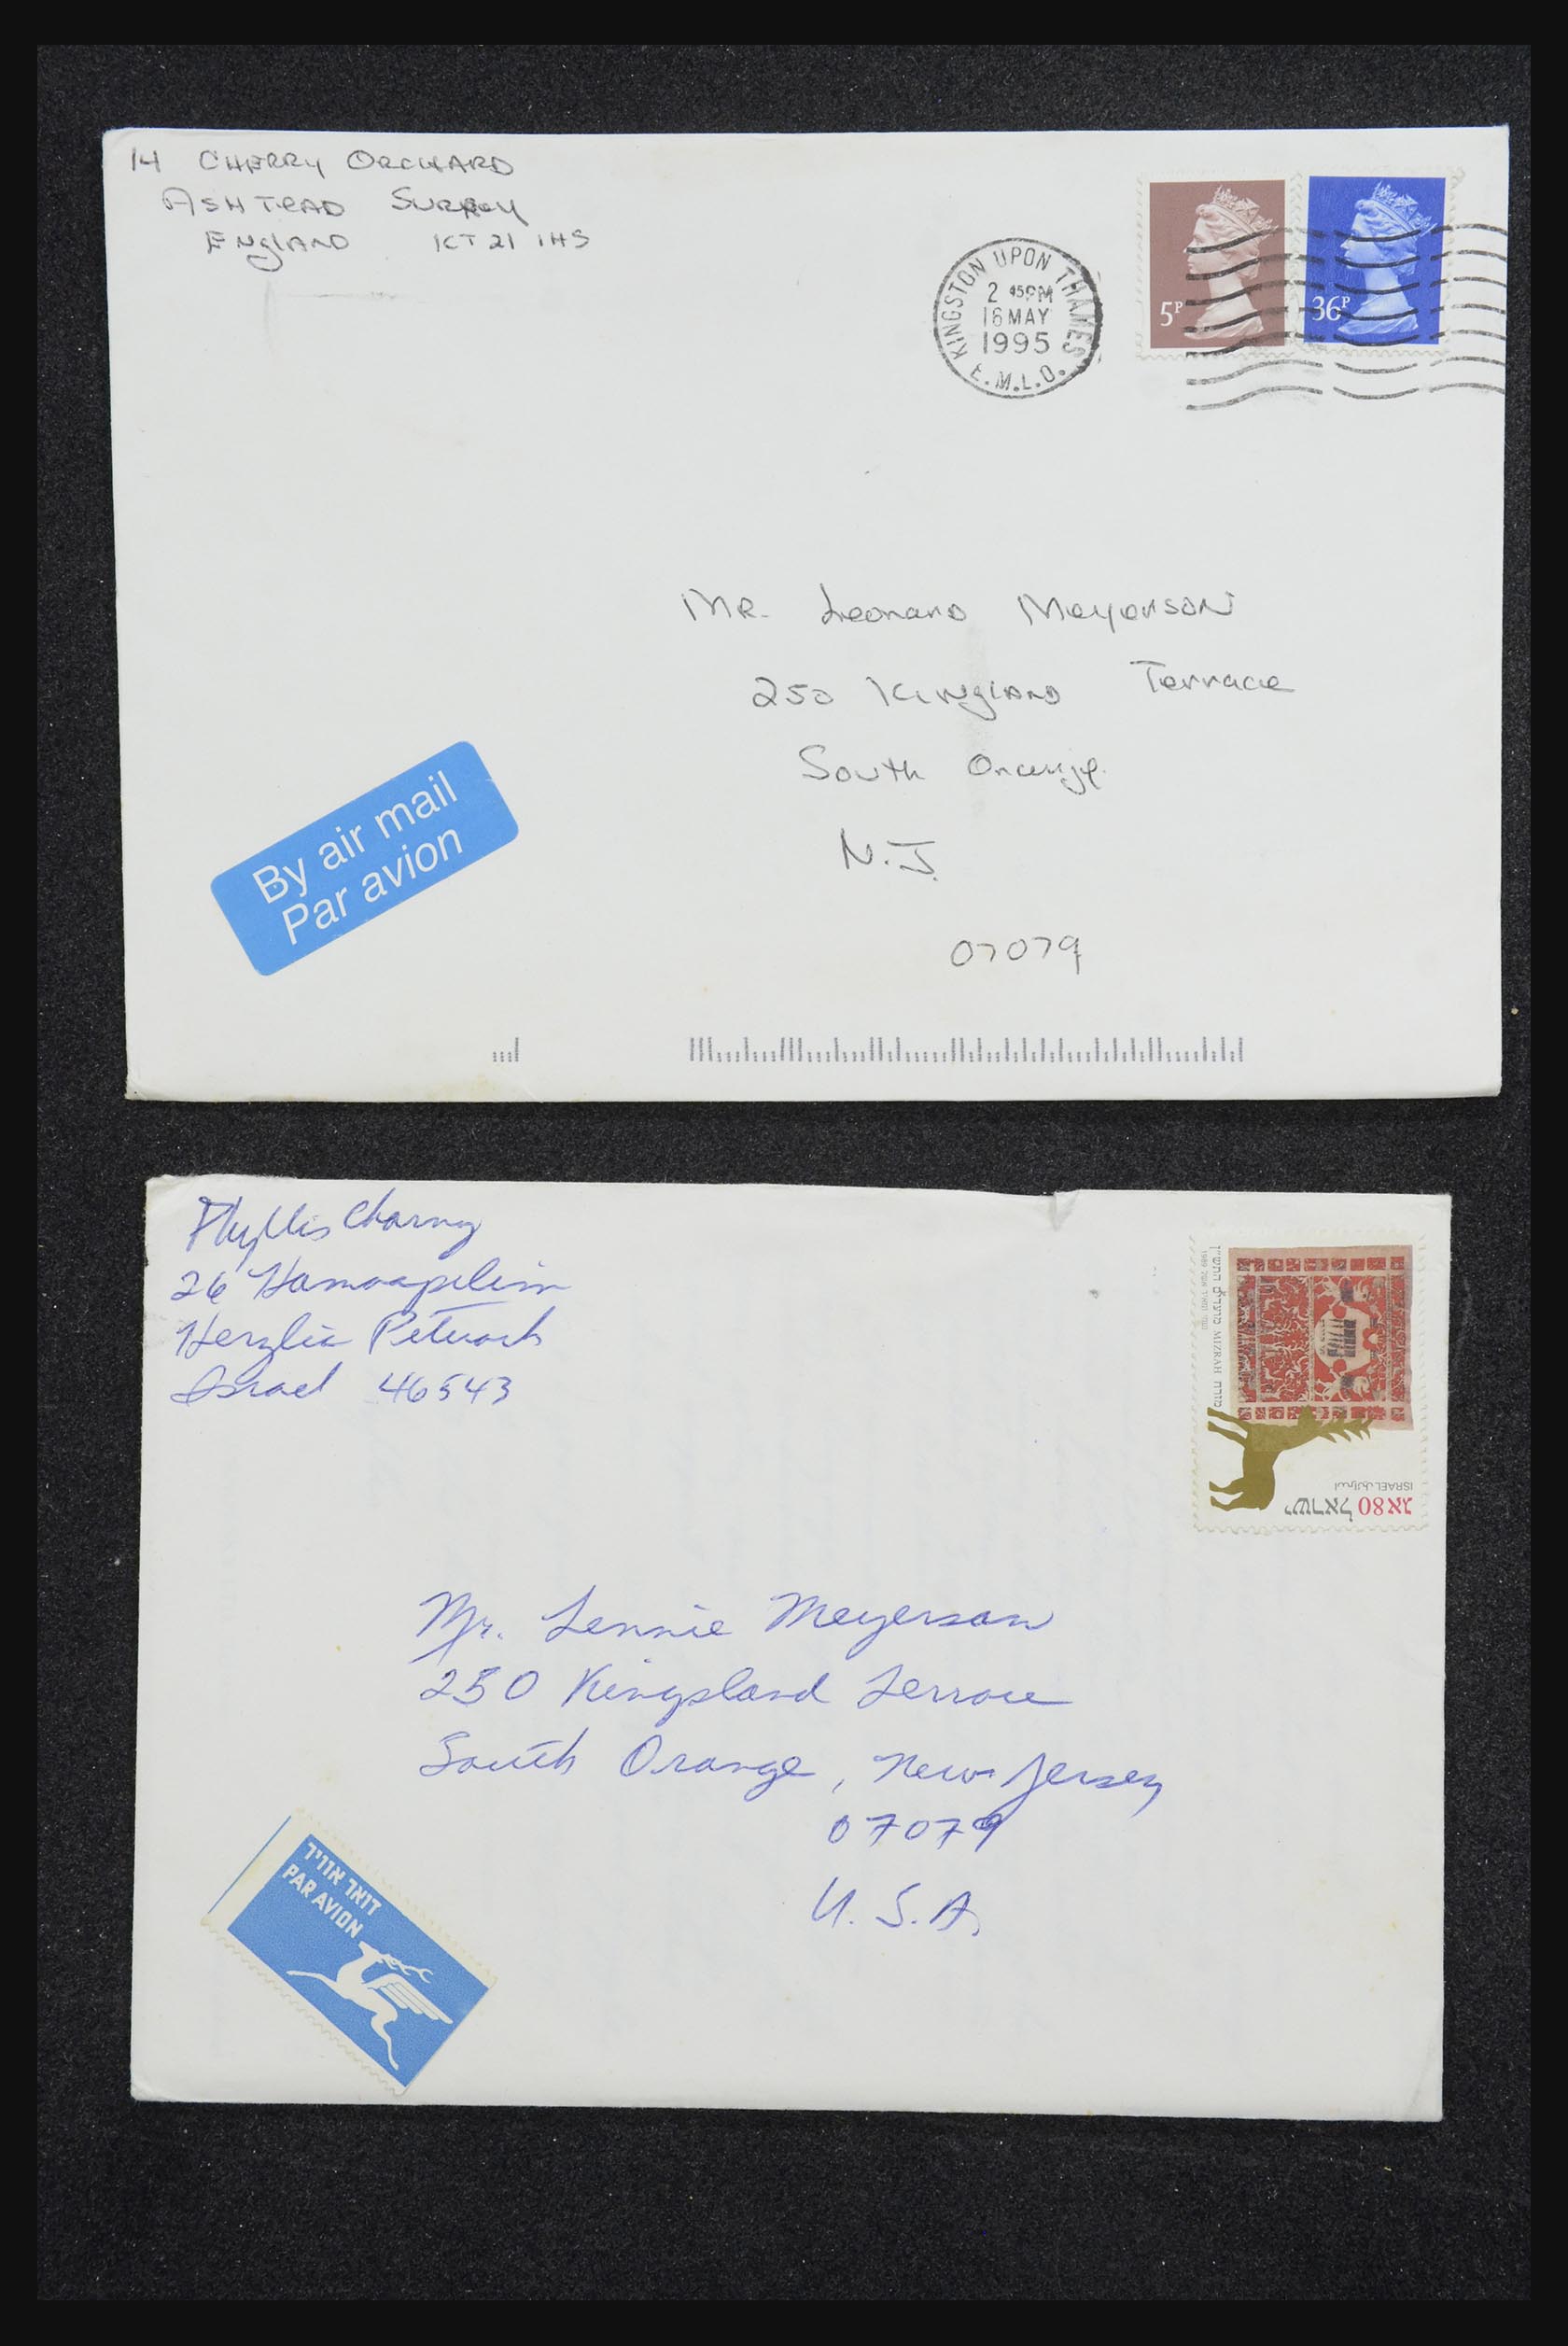 14 CHERRY ORCHARD
ASHTEAD SURREY
ENGLAND KT 21 1HS
KINGSTON UPON THAMES
2 45PM
16 MAY
1995
E.M.L.O.
5P
36P
MR. Leonard Meyerson
250 Kingland Terrace
South Orange
N.J.
07079
By air mail
Par avion
Phyllis Charny
26 Hamaapilim
Herzlia Petuach
Israel 46543
מועדים התש"ן
MIZRAH מזרח
ISRAEL اسرائيل
ישראל 80 אג
Mr. Lennie Meyerson
250 Kingsland Terrace
South Orange, New Jersey
07079
U.S.A.
דואר אוויר
PAR AVION